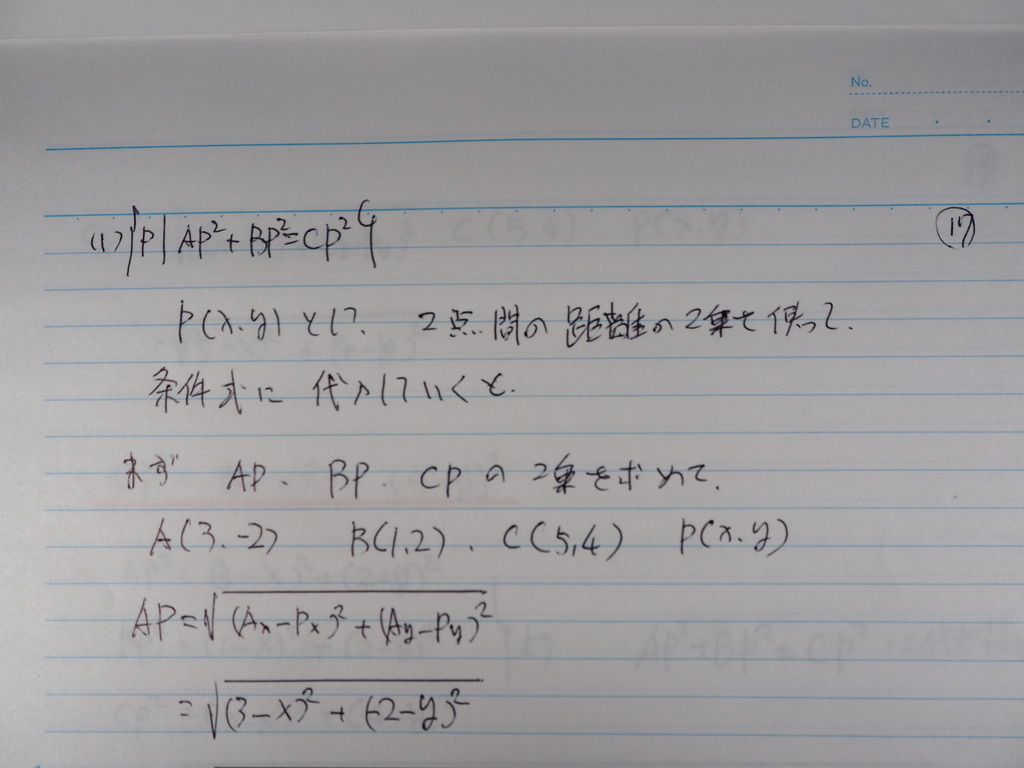 No.
DATE
(1) {P | AP²+BP²=CP²}
⑰
P(x.y) として. 2点間の距離の2乗を使って.
条件式に 代入していくと.
まず AP. BP. CPの2乗を求めて.
A(3.-2) B(1.2). C(5,4) P(x.y)
AP=√((Ax-Px)²+(Ay-Py)²)
=√((3-x)²+(-2-y)²)